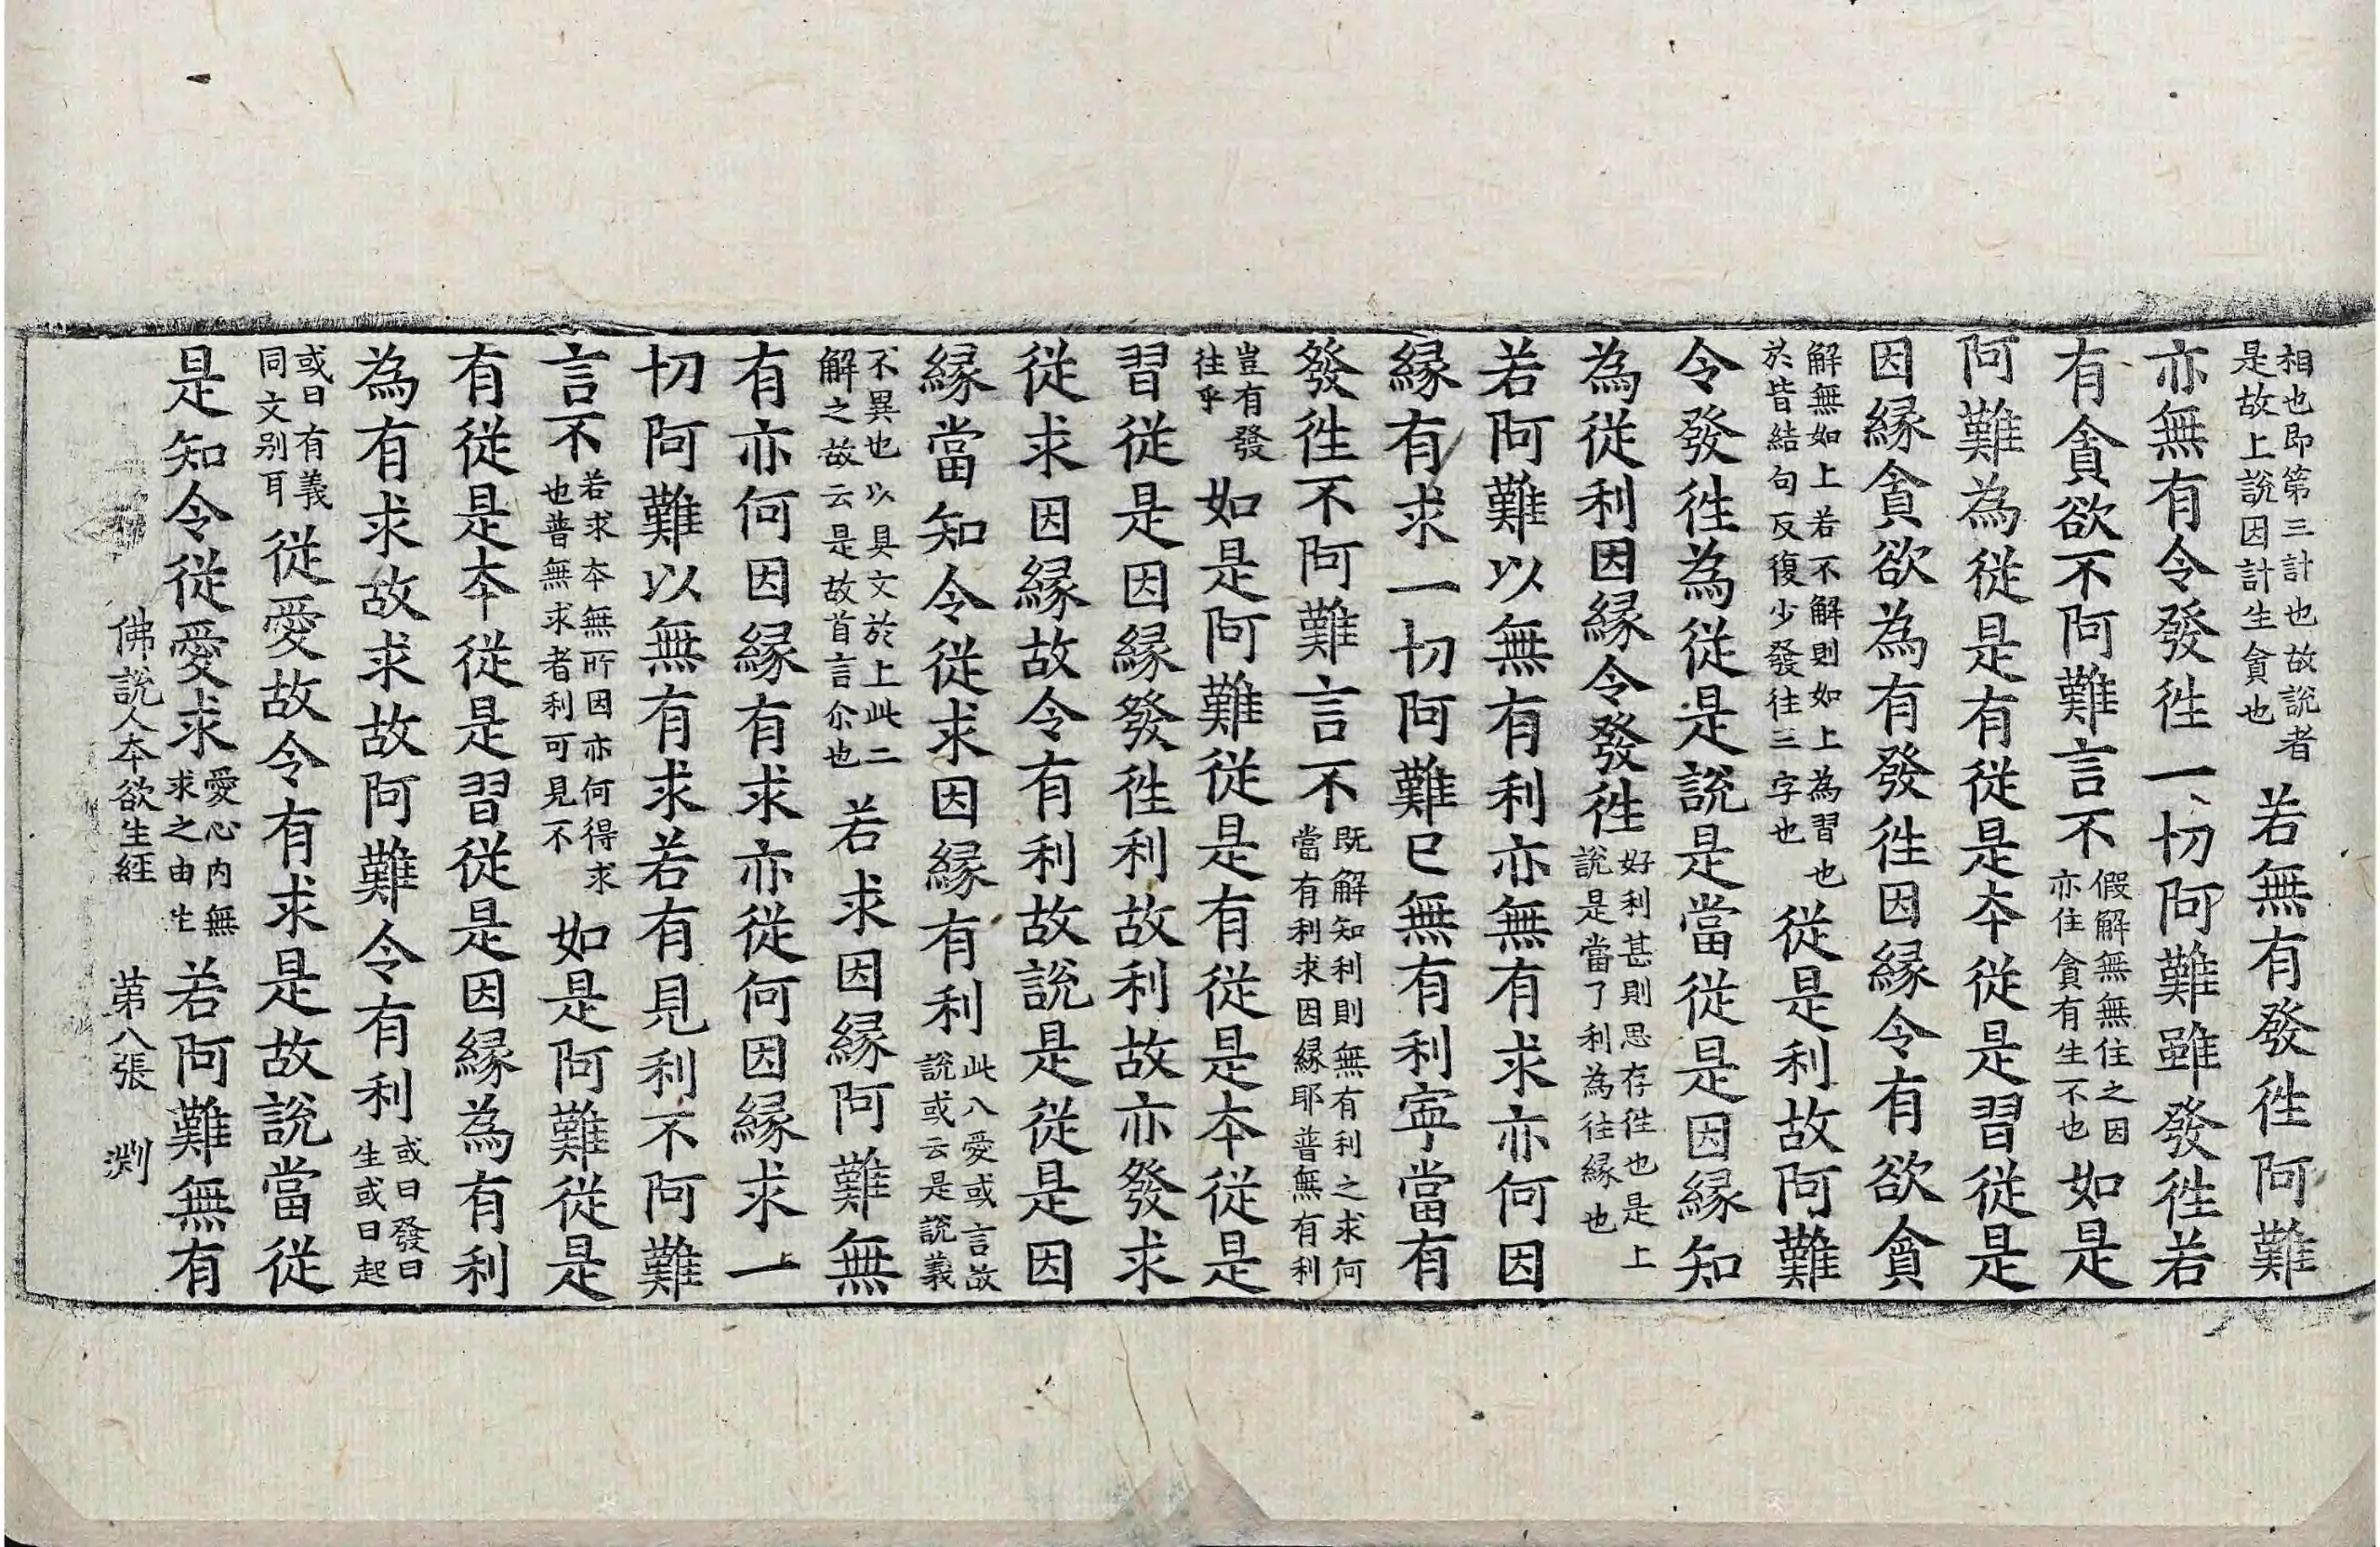 相也即第三計也故說者是故上說因計生貪也若無有發徃阿難
亦無有令發徃一切阿難雖發徃若
有貪欲不阿難言不假解無無住之因亦住貪有生不也如是
阿難為從是有從是夲從是習從是
因縁貪欲為有發徃因縁令有欲貪
解無如上若不解則如上為習也於皆結句反復少發往三字也從是利故阿難
令發徃為從是說是當從是因縁知
為從利因縁令發徃好利甚則思存徃也是上說是當了利為往縁也
若阿難以無有利亦無有求亦何因
縁有求一切阿難已無有利寕當有
發徃不阿難言不既解知利則無有利之求何當有利求因縁耶普無有利
豈有發往乎如是阿難從是有從是夲從是
習從是因縁發徃利故利故亦發求
從求因縁故令有利故說是從是因
縁當知令從求因縁有利此八愛或言故說或云是說義
不異也以具文於上此二解之故云是故首言尒也若求因縁阿難無
有亦何因縁有求亦從何因縁求一
切阿難以無有求若有見利不阿難
言不若求夲無所因亦何得求也普無求者利可見不如是阿難從是
有從是夲從是習從是因縁為有利
為有求故求故阿難令有利或曰發曰生或曰起
或曰有義同文别耳從愛故令有求是故說當從
是知令從愛求愛心内無求之由生若阿難無有
佛說人夲欲生經 苐八張 渕